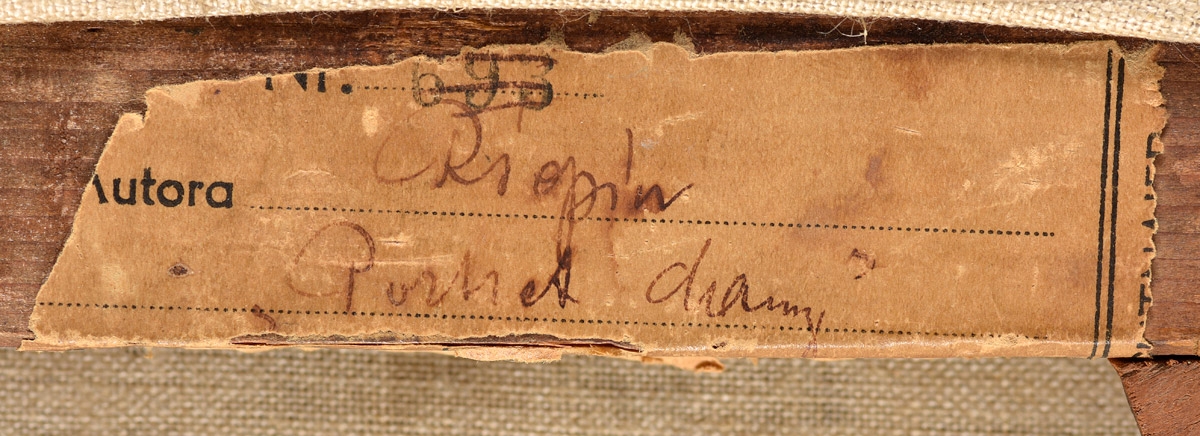 Nr. 693
Autora Riepin
„Portret damy”